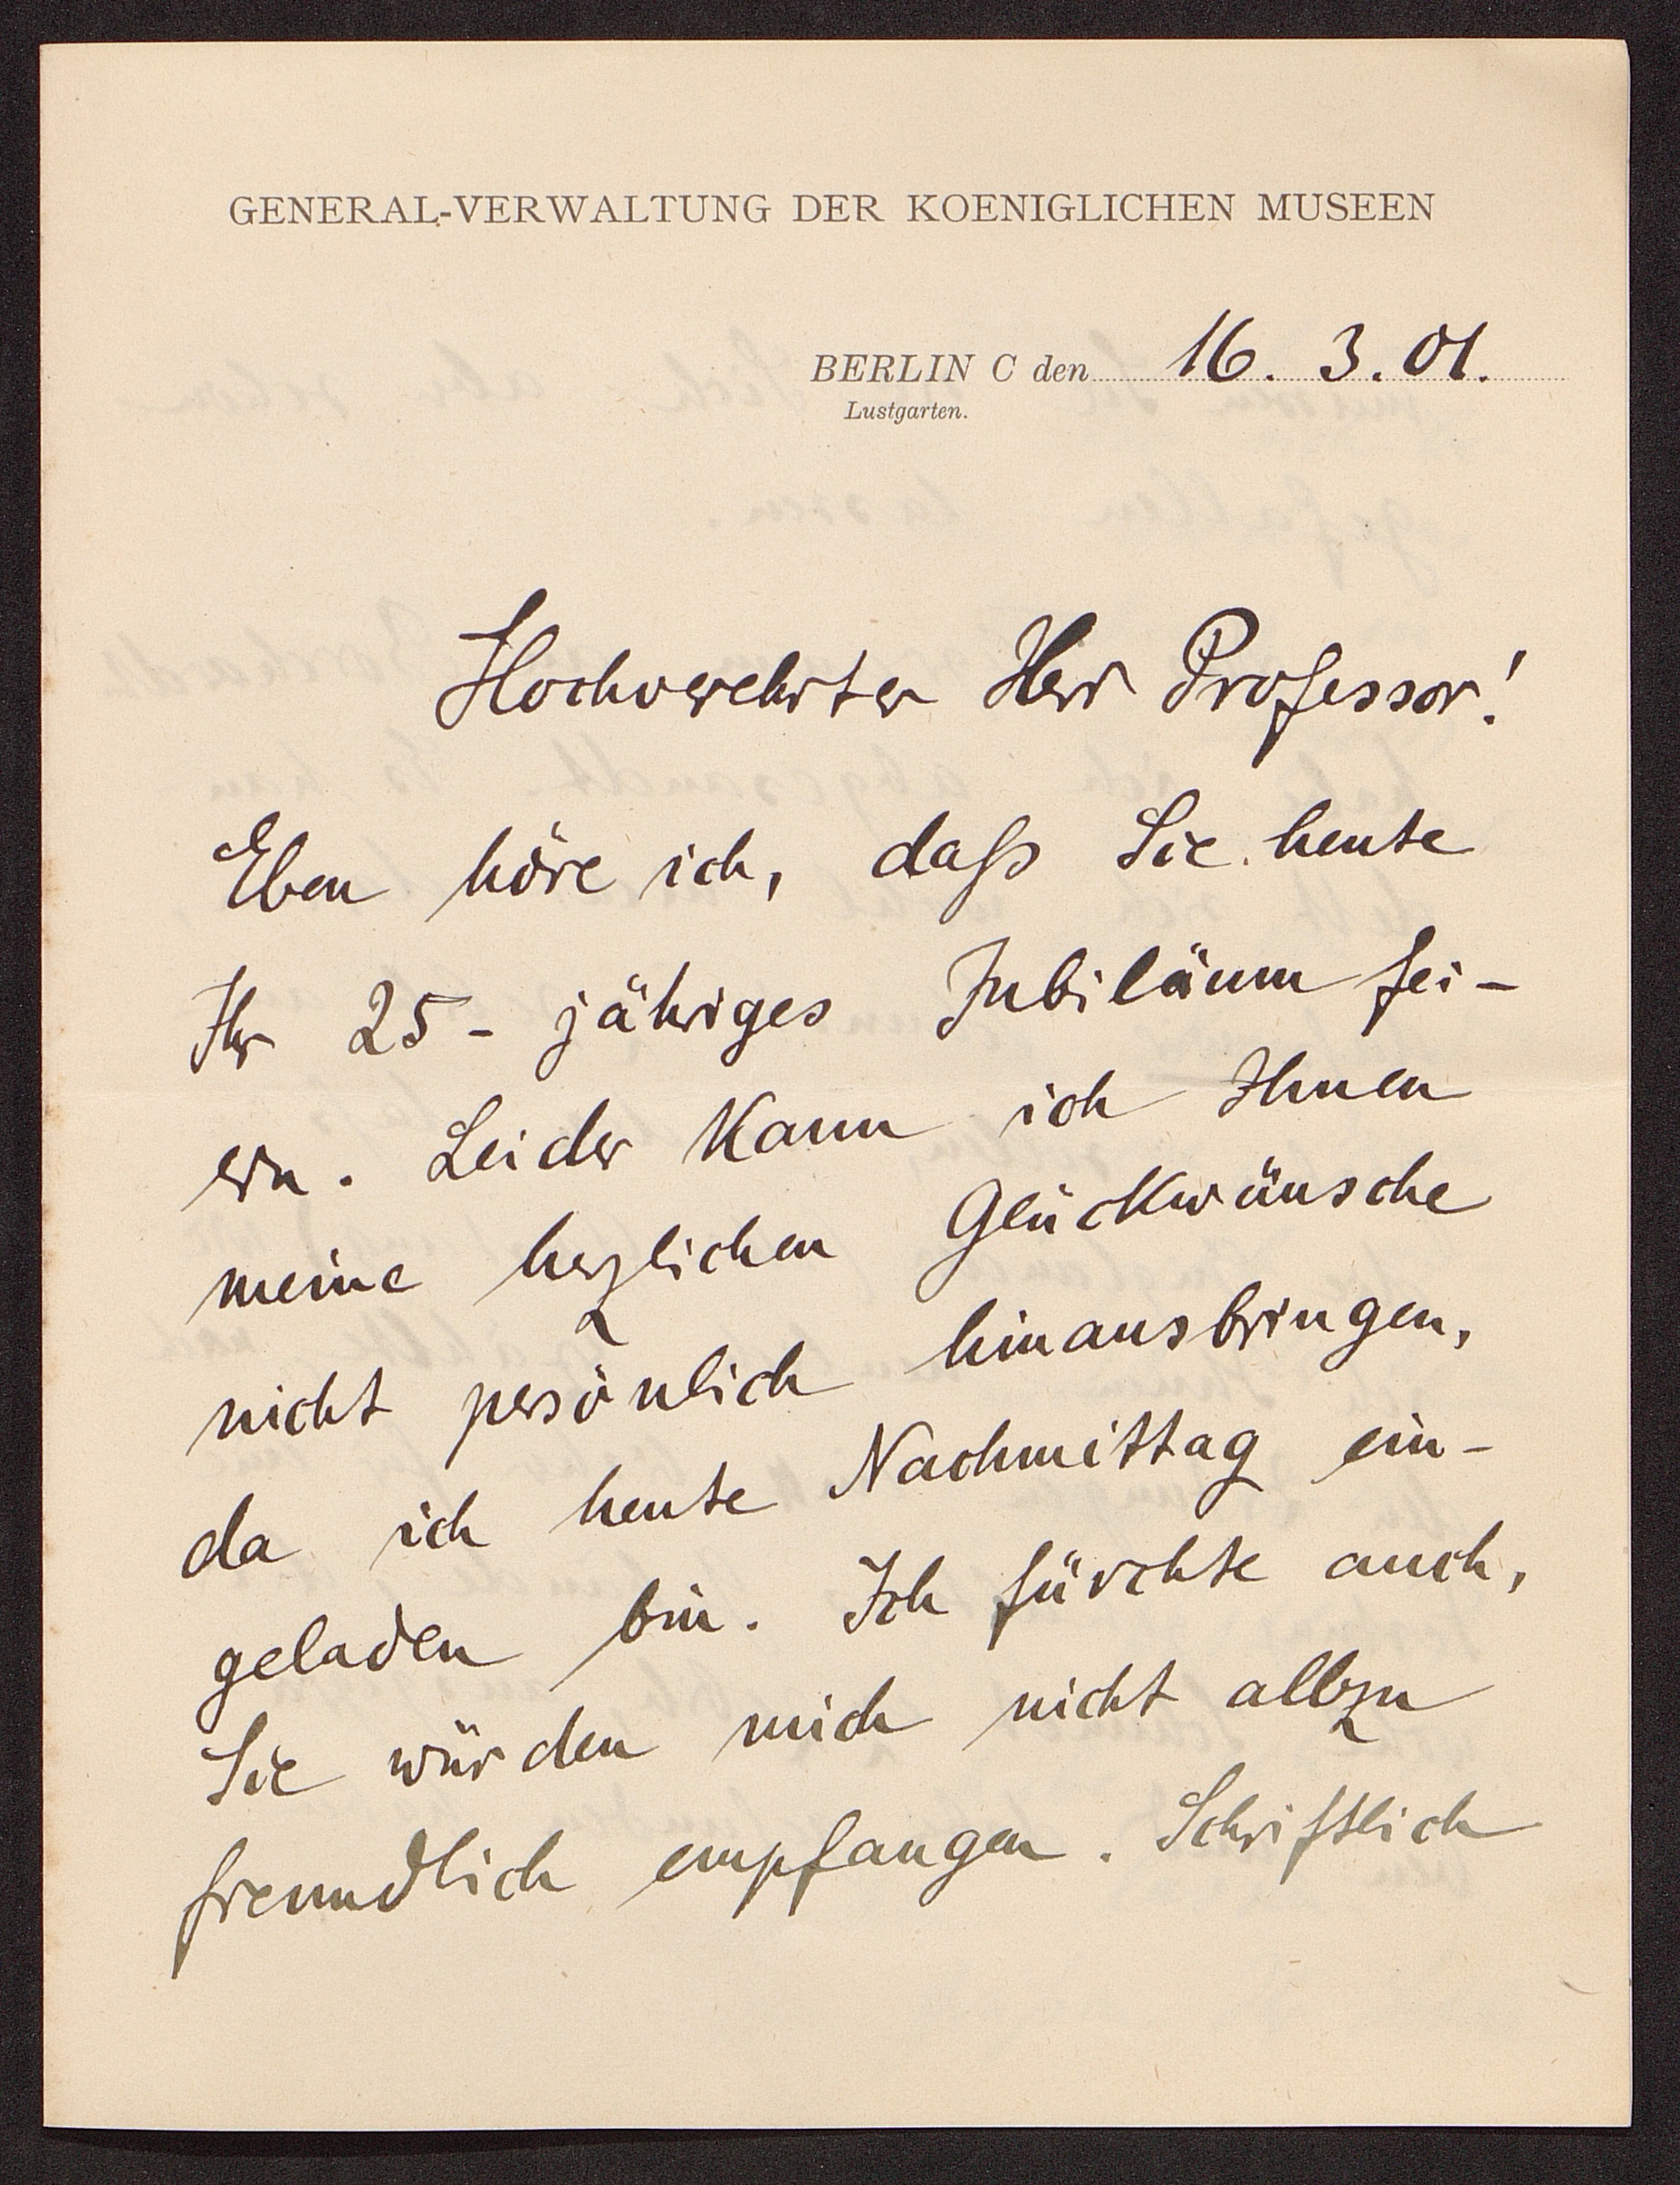 GENERAL-VERWALTUNG DER KOENIGLICHEN MUSEEN
BERLIN C den 16. 3. 01.
Lustgarten.
Hochverehrter Herr Professor!
Eben höre ich, daß Sie heute
Ihr 25-jähriges Jubiläum fei-
ern. Leider kann ich Ihnen
meine herzlichen Glückwünsche
nicht persönlich hinausbringen,
da ich heute Nachmittag ein-
geladen bin. Ich fürchte auch,
Sie würden mich nicht allzu
freundlich empfangen. Schriftlich